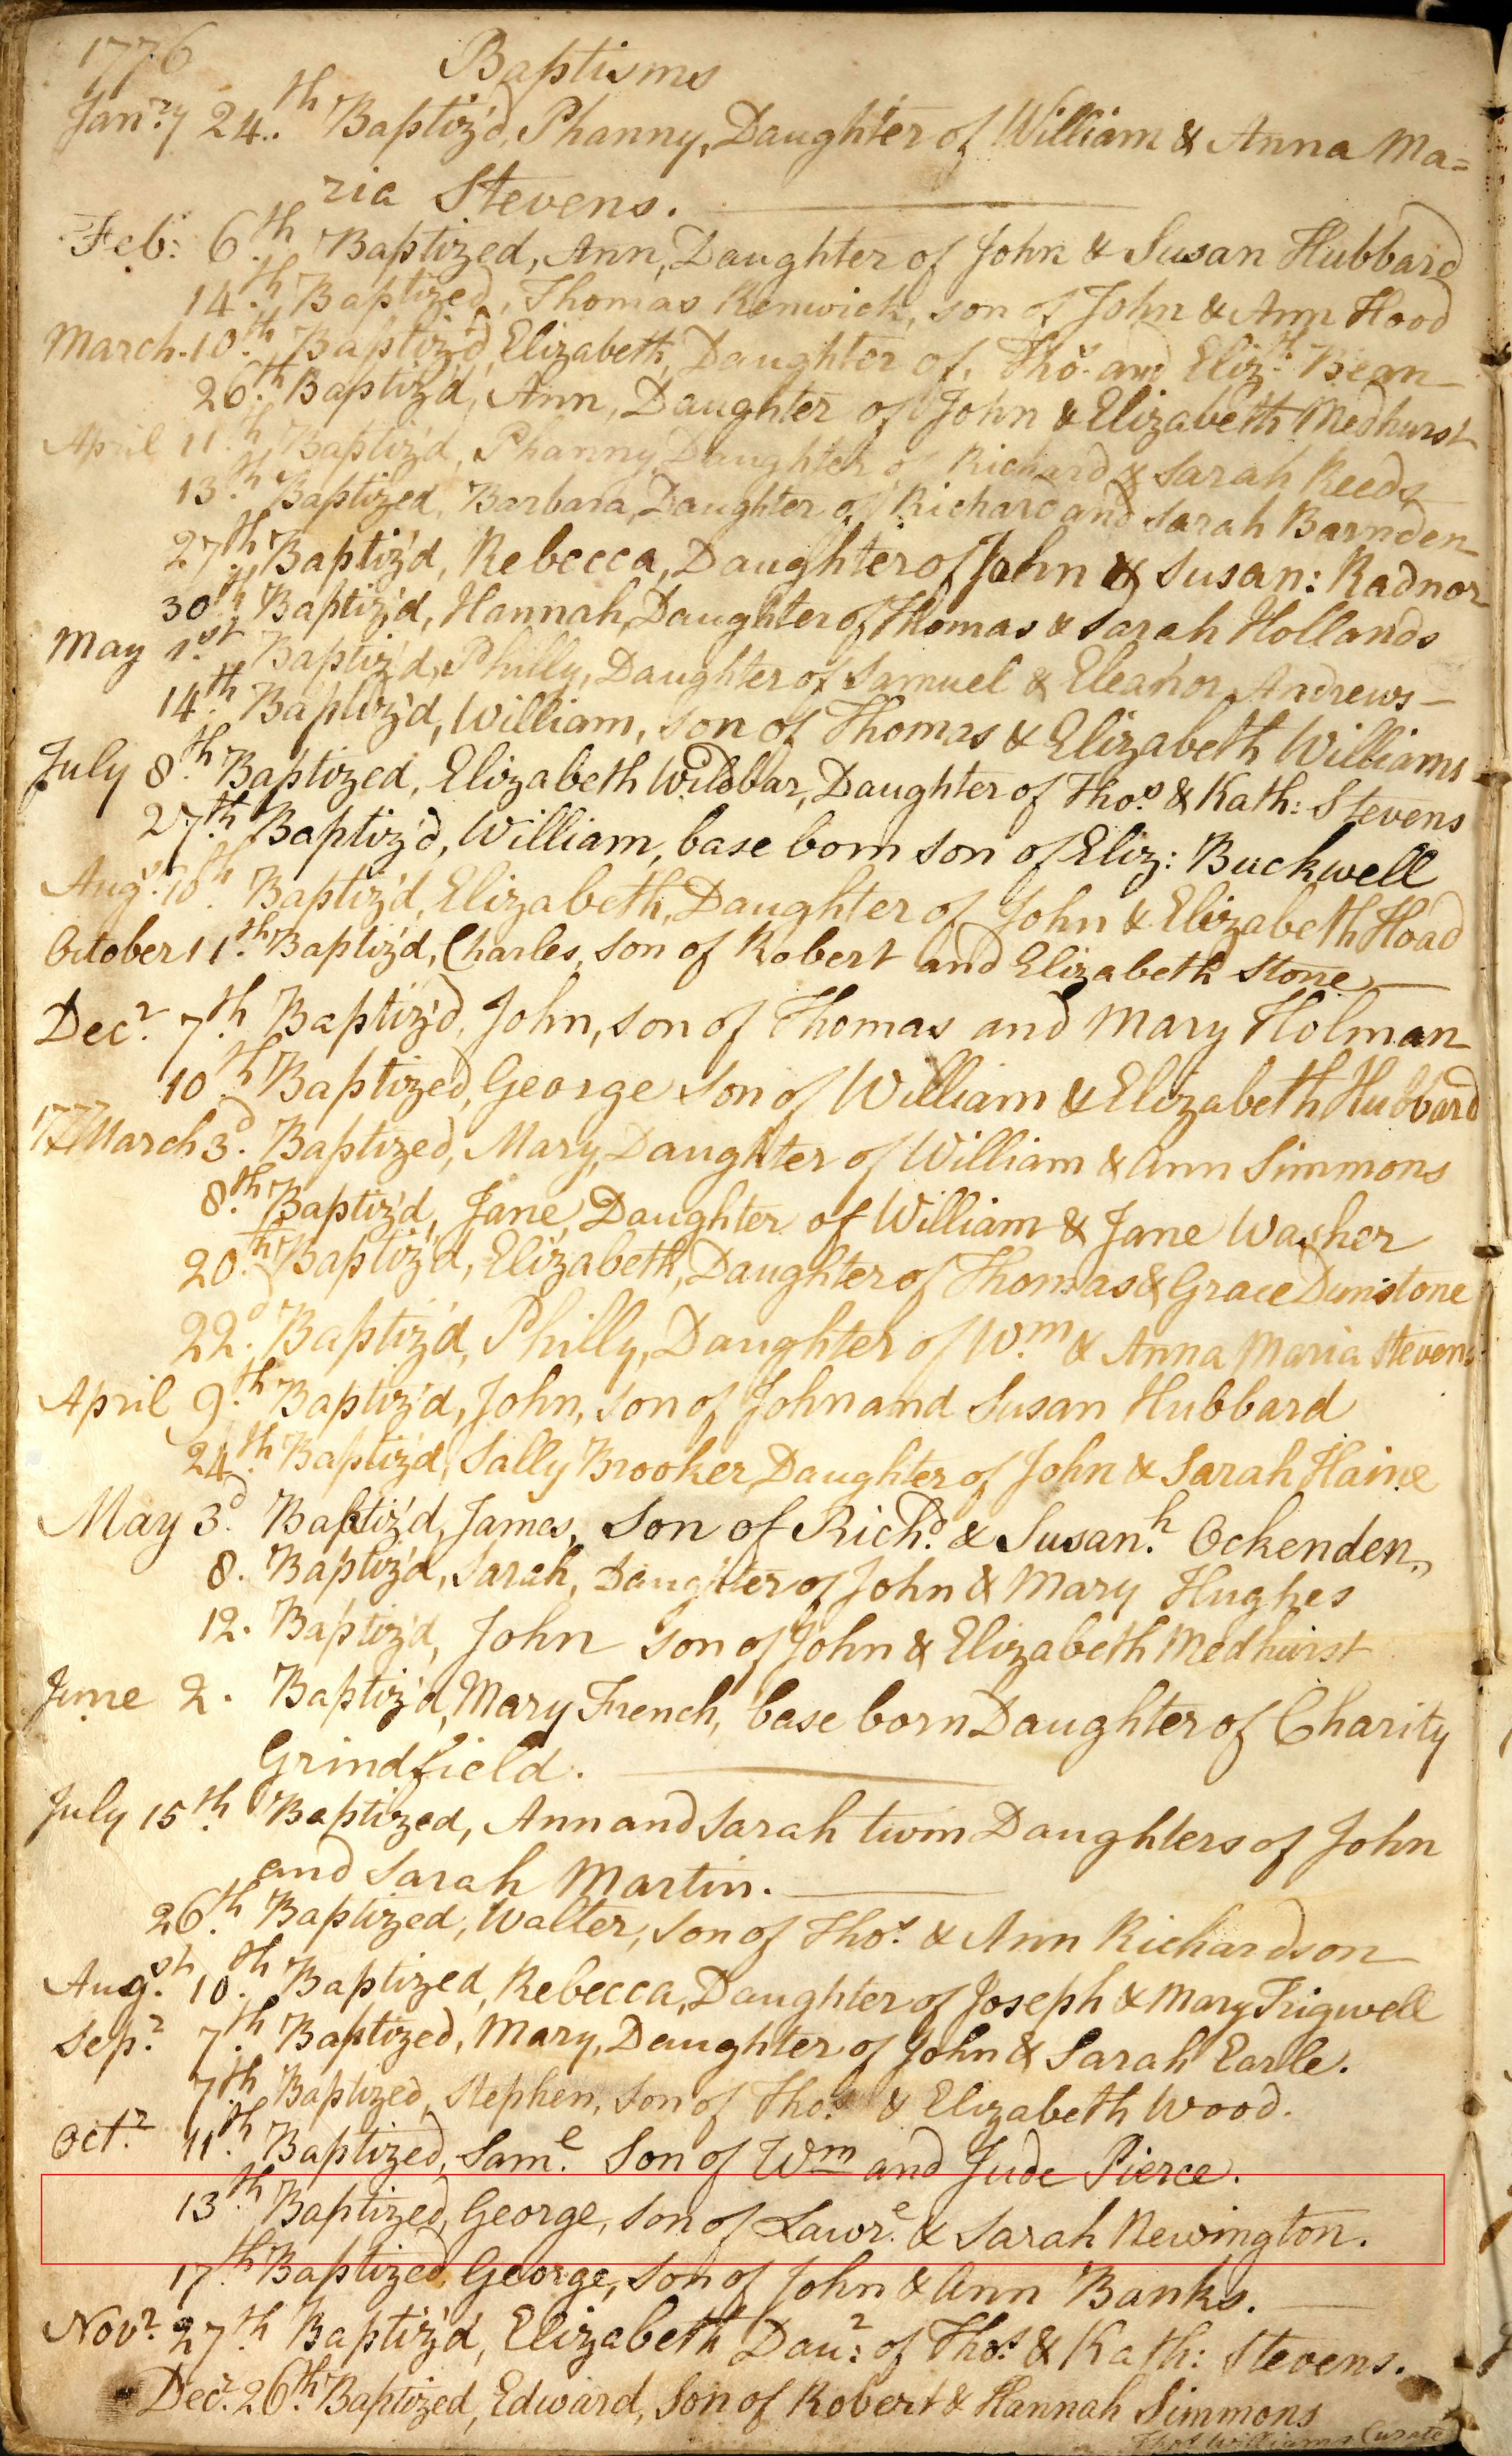 1776 Baptisms
Janry 24th Baptiz'd, Phanny, Daughter of William & Anna Ma=
ria Stevens.
Feb: 6th Baptized, Ann, Daughter of John & Susan Hubbard
14th Baptized, Thomas Renwick, son of John & Ann Hood
March 10th Baptiz'd, Elizabeth, Daughter of, Thos. and Elizth Bean
26th Baptiz'd, Ann, Daughter of John & Elizabeth Medhurst
April 11th Baptiz'd, Phanny, Daughter of Richard & Sarah Reeds
13th Baptized, Barbara, Daughter of Richard and Sarah Barnden
27th Baptiz'd, Rebecca, Daughter of John & Susan: Radnor
30th Baptiz'd, Hannah, Daughter of Thomas & Sarah Hollands
May 1st Baptiz'd, Philly, Daughter of Samuel & Eleanor Andrews
14th Baptiz'd, William, son of Thomas & Elizabeth Williams
July 8th Baptized, Elizabeth Wildbar, Daughter of Thos & Kath: Stevens
27th Baptiz'd, William, base born son of Eliz: Buckwell
Augst 10th Baptiz'd, Elizabeth, Daughter of John & Elizabeth Hoad
October 11th Baptiz'd, Charles, son of Robert and Elizabeth Stone
Decr 7th Baptiz'd, John, son of Thomas and Mary Holman
10th Baptized, George son of William & Elizabeth Hubbard
1777 March 3d Baptized, Mary, Daughter of William & Ann Simmons
8th Baptiz'd, Jane, Daughter of William & Jane Washer
20th Baptiz'd, Elizabeth, Daughter of Thomas & Grace Dunstone
22d Baptiz'd, Philly, Daughter of Wm & Anna Maria Stevens
April 9th Baptiz'd, John, son of John and Susan Hubbard
24th Baptiz'd, Sally Brooker Daughter of John & Sarah Haine
May 3d Baptiz'd, James, son of Richd & Susanh Ockenden
8. Baptiz'd, Sarah, Daughter of John & Mary Hughes
12. Baptiz'd, John son of John & Elizabeth Medhurst
June 2. Baptiz'd, Mary French, base born Daughter of Charity
Grindfield.
July 15th Baptized, Ann and Sarah twin Daughters of John
and Sarah Martin.
26th Baptized, Walter, son of Thos. & Ann Richardson
Augst 10th Baptized, Rebecca, Daughter of Joseph & Mary Trigwell
Sepr 7th Baptized, Mary, Daughter of John & Sarah Earle.
7th Baptized, Stephen, son of Thos. & Elizabeth Wood.
Octr 11th Baptized, Same. Son of Wm and Jude Pierce.
13th Baptized, George, son of Lawre. & Sarah Newington.
17th Baptized, George, son of John & Ann Banks.
Novr 27th Baptiz'd, Elizabeth Daur: of Thos. & Kath: Stevens.
Decr 26th Baptized, Edward, Son of Robert & Hannah Simmons
Thos. Williams Curate